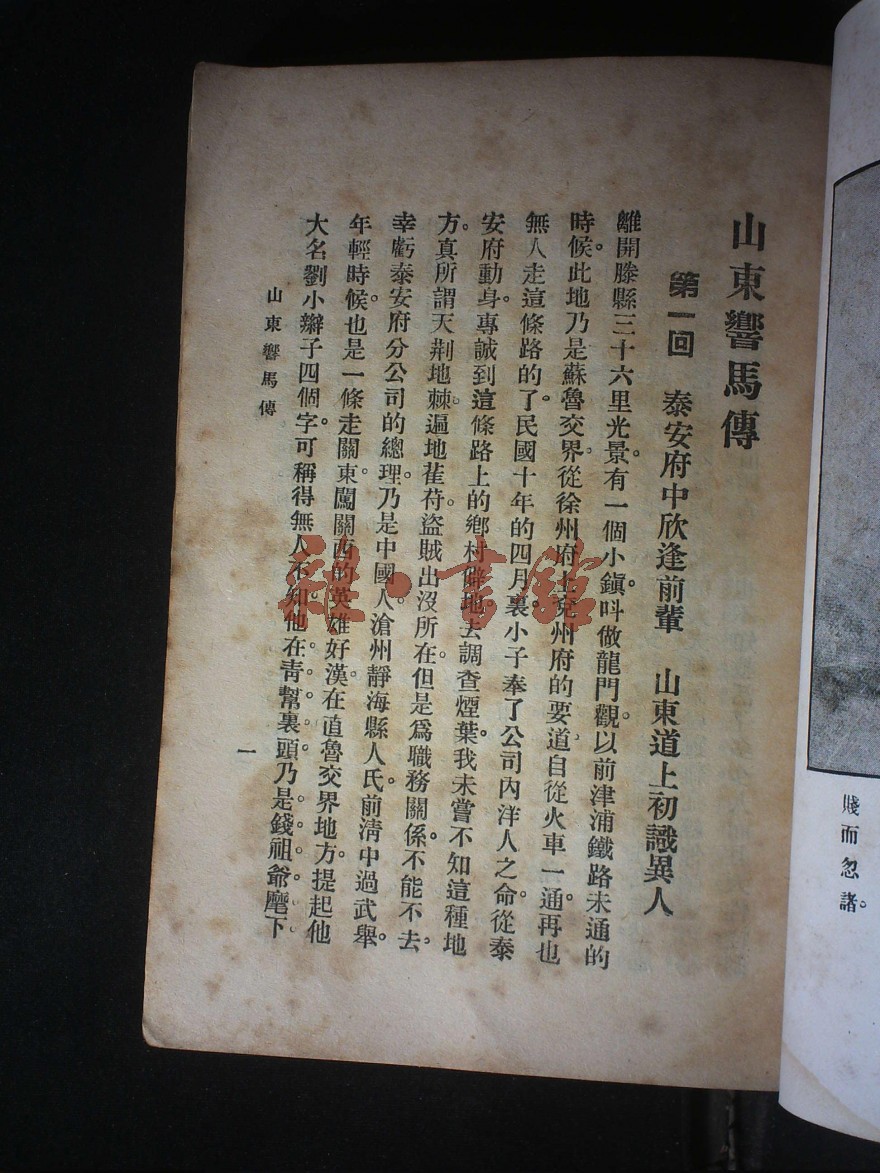 賤而忽諸。
山東響馬傳
第一回　泰安府中欣逢前輩　山東道上初識異人
離開滕縣三十六里光景。有一個小鎮。叫做龍門觀。以前津浦鐵路未通的
時候。此地乃是蘇魯交界。從徐州府上兗州府的要道。自從火車一通。再也
無人走這條路的了。民國十年的四月裏。小子奉了公司內洋人之命。從泰
安府動身。專誠到這條路上的鄉村僻地去調查煙葉。我未嘗不知這種地
方。真所謂天荆地棘。遍地萑苻。盜賊出沒所在。但是爲職務關係。不能不去。
幸虧泰安府分公司的總理。乃是中國人。滄州靜海縣人氏。前清中過武舉。
年輕時候。也是一條走關東闖關西的英雄好漢。在直魯交界地方。提起他
大名劉小辮子四個字。可稱得無人不知。他在青幫裏頭。乃是錢祖爺麾下。
山東響馬傳
一
雜·書館